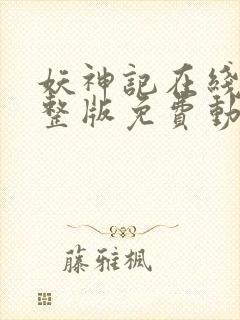 妖神記在綫
整版免費動
藤雅楓